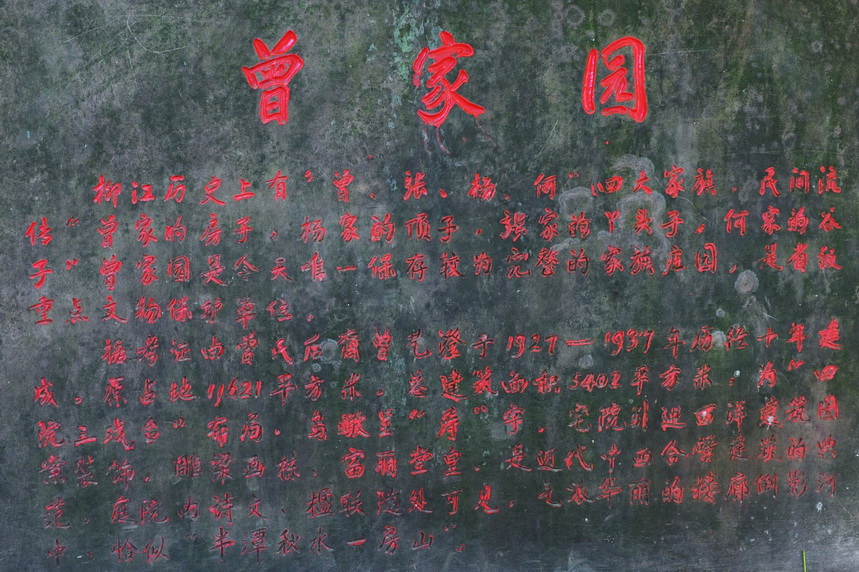 曾家园
柳江历史上有“曾、张、杨、何”四大家族，民间流
传“曾家的房子，杨家的顶子，張家的丫头子，何家的谷
子”曾家园是今天唯一保存较为完整的家族庭园，是省级
重点文物保护单位。
据考证由曾氏后裔曾艺澄于1927—1937年历经十年建
成。原占地11621平方米，总建筑面积3402平方米，为“四
院三戏台”布局，鸟瞰呈“寿”字，宅院引进西洋建筑
装饰，雕梁画栋，富丽堂皇，是近代中西合璧建筑的典
范。庭院内诗文、楹联随处可见，华丽的楼廊倒影河
中，恰似“半潭秋水一房山”。